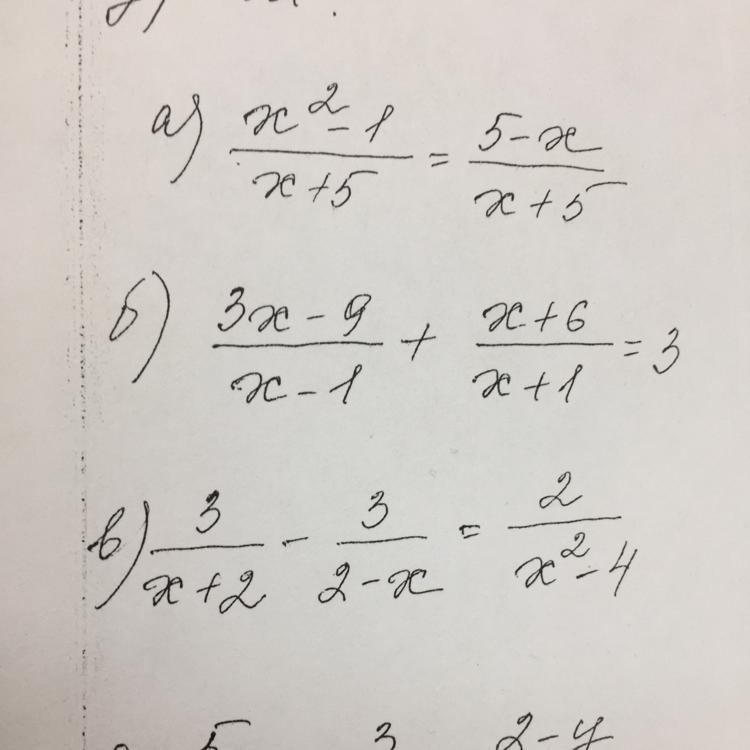 а) (x² - 1)/(x + 5) = (5 - x)/(x + 5)
б) (3x - 9)/(x - 1) + (x + 6)/(x + 1) = 3
в) 3/(x + 2) - 3/(2 - x) = 2/(x² - 4)
5 3 2 - y